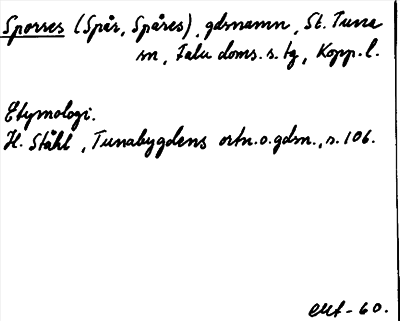 Sporses (Spår, Spåres), gdsnamn, St. Tuna
sn, Falu doms. s. tg, Kopp. l.
Etymologi.
H. Ståhl, Tunabygdens ortn. o. gdsn., s. 106.
-60.